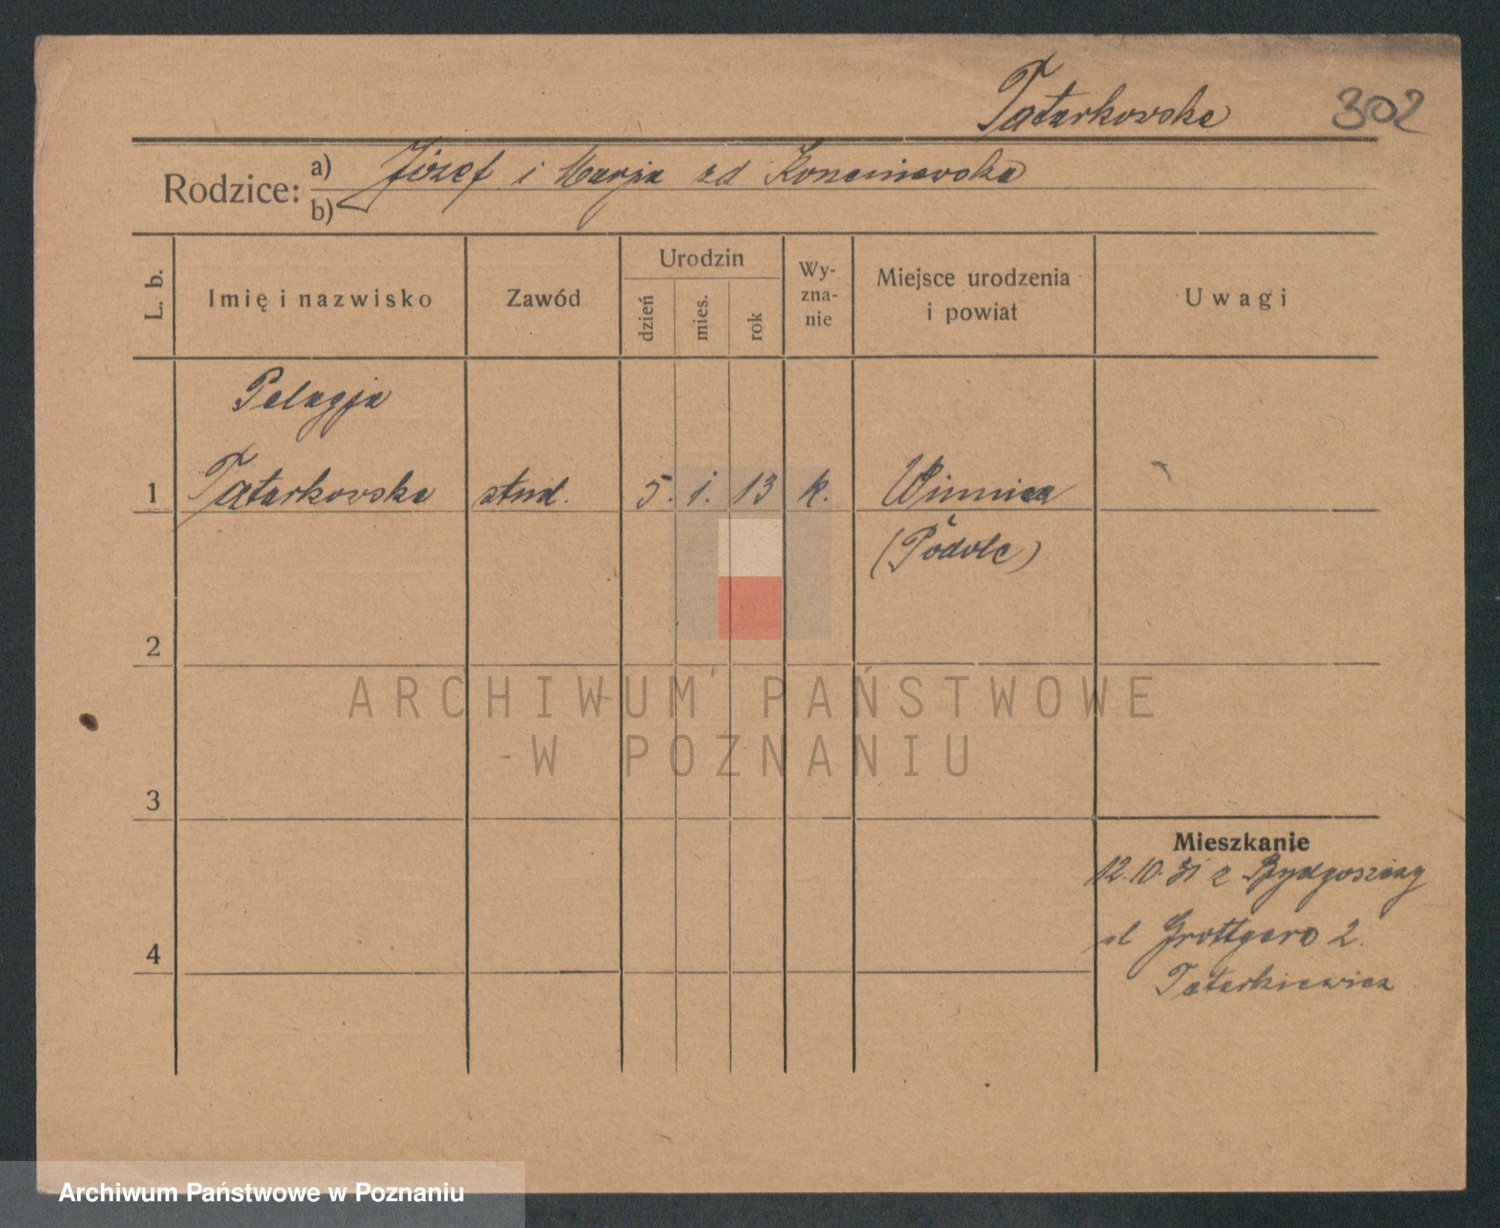 Tatarkowska 302
Rodzice: a) Józef i Marja zd
b)
L. b.
Imię i nazwisko
Zawód
Urodzin
dzień
mies.
rok
Wy-
zna-
nie
Miejsce urodzenia
i powiat
Uwagi
Pelagja
1 Tatarkowska stud. 5. 1. 13 k. Winnica
(Podole)
2
3
4
Mieszkanie
12.10.31 z Bydgoszczy
ul Grottgera 2.
Tatarkiewicz
ARCHIWUM PAŃSTWOWE
W POZNANIU
Archiwum Państwowe w Poznaniu